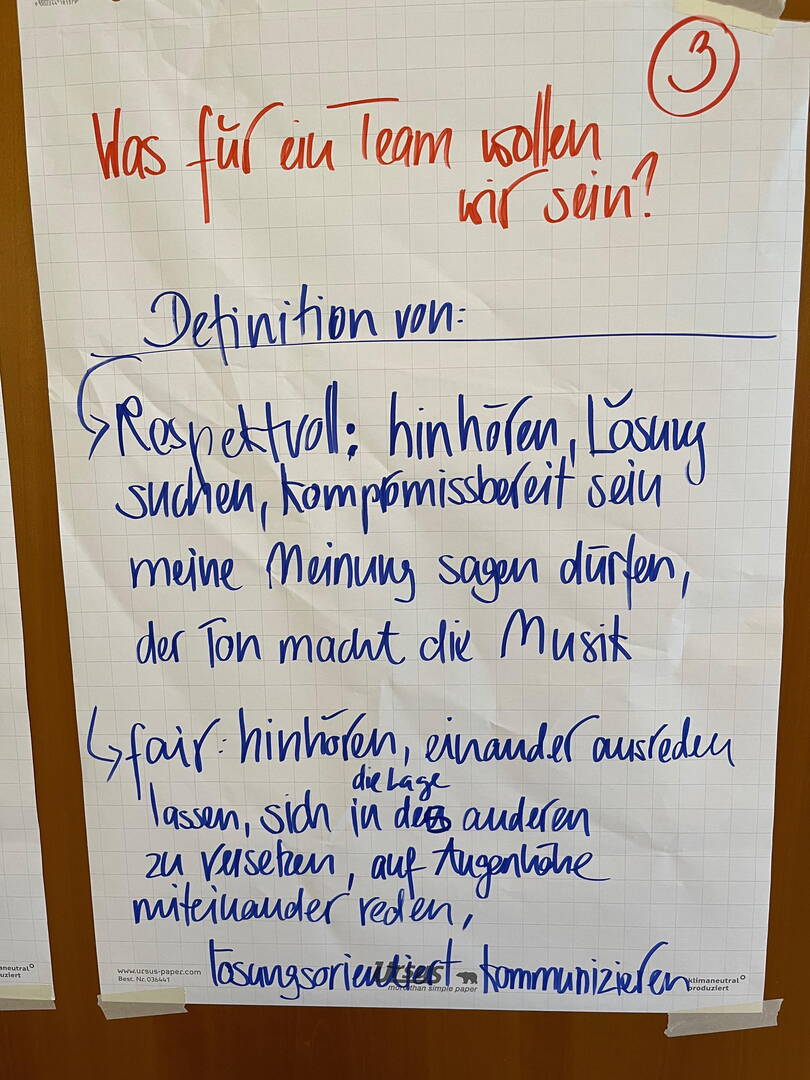 3
Was für ein Team wollen
wir sein?
Definition von:
Respektvoll: hinhören, Lösung
suchen, kompromissbereit sein
meine Meinung sagen dürfen,
der Ton macht die Musik
fair: hinhören, einander ausreden
die Lage
lassen, sich in des anderen
zu versetzen, auf Augenhöhe
miteinander reden,
lösungsorientiert kommunizieren
www.ursus-paper.com
Best. Nr. 036441
Ursus
more than simple paper
klimaneutral
produziert